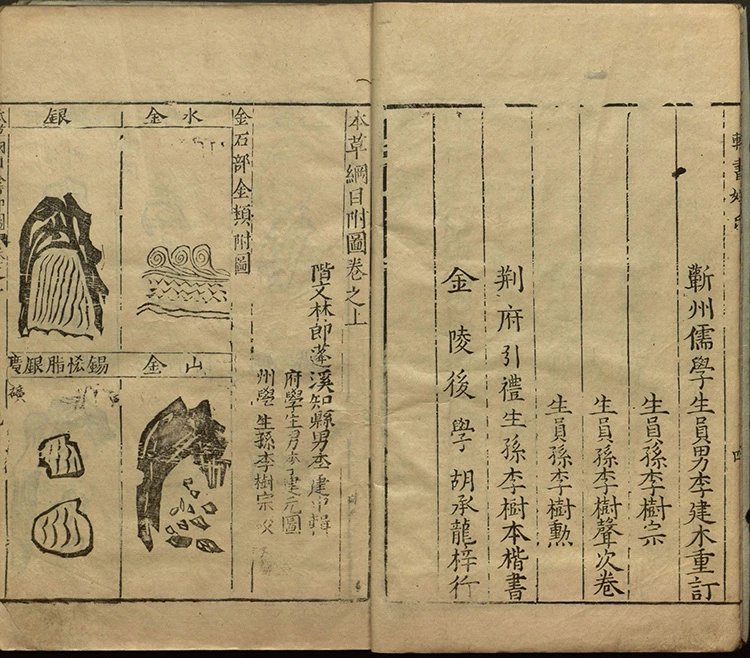 輯書姓氏
四
蘄州儒學生員男李建木重訂
生員孫李樹宗
生員孫李樹聲次卷
生員孫李樹勳
荆府引禮生孫李樹本楷書
金陵後學胡承龍梓行
本草綱目附圖卷之上
階文林郎蓬溪知縣男李建中輯
府學生男李建元圖
州學生孫李樹宗校
金石部金類附圖
水金
銀
山金
錫恡脂銀廣
礦